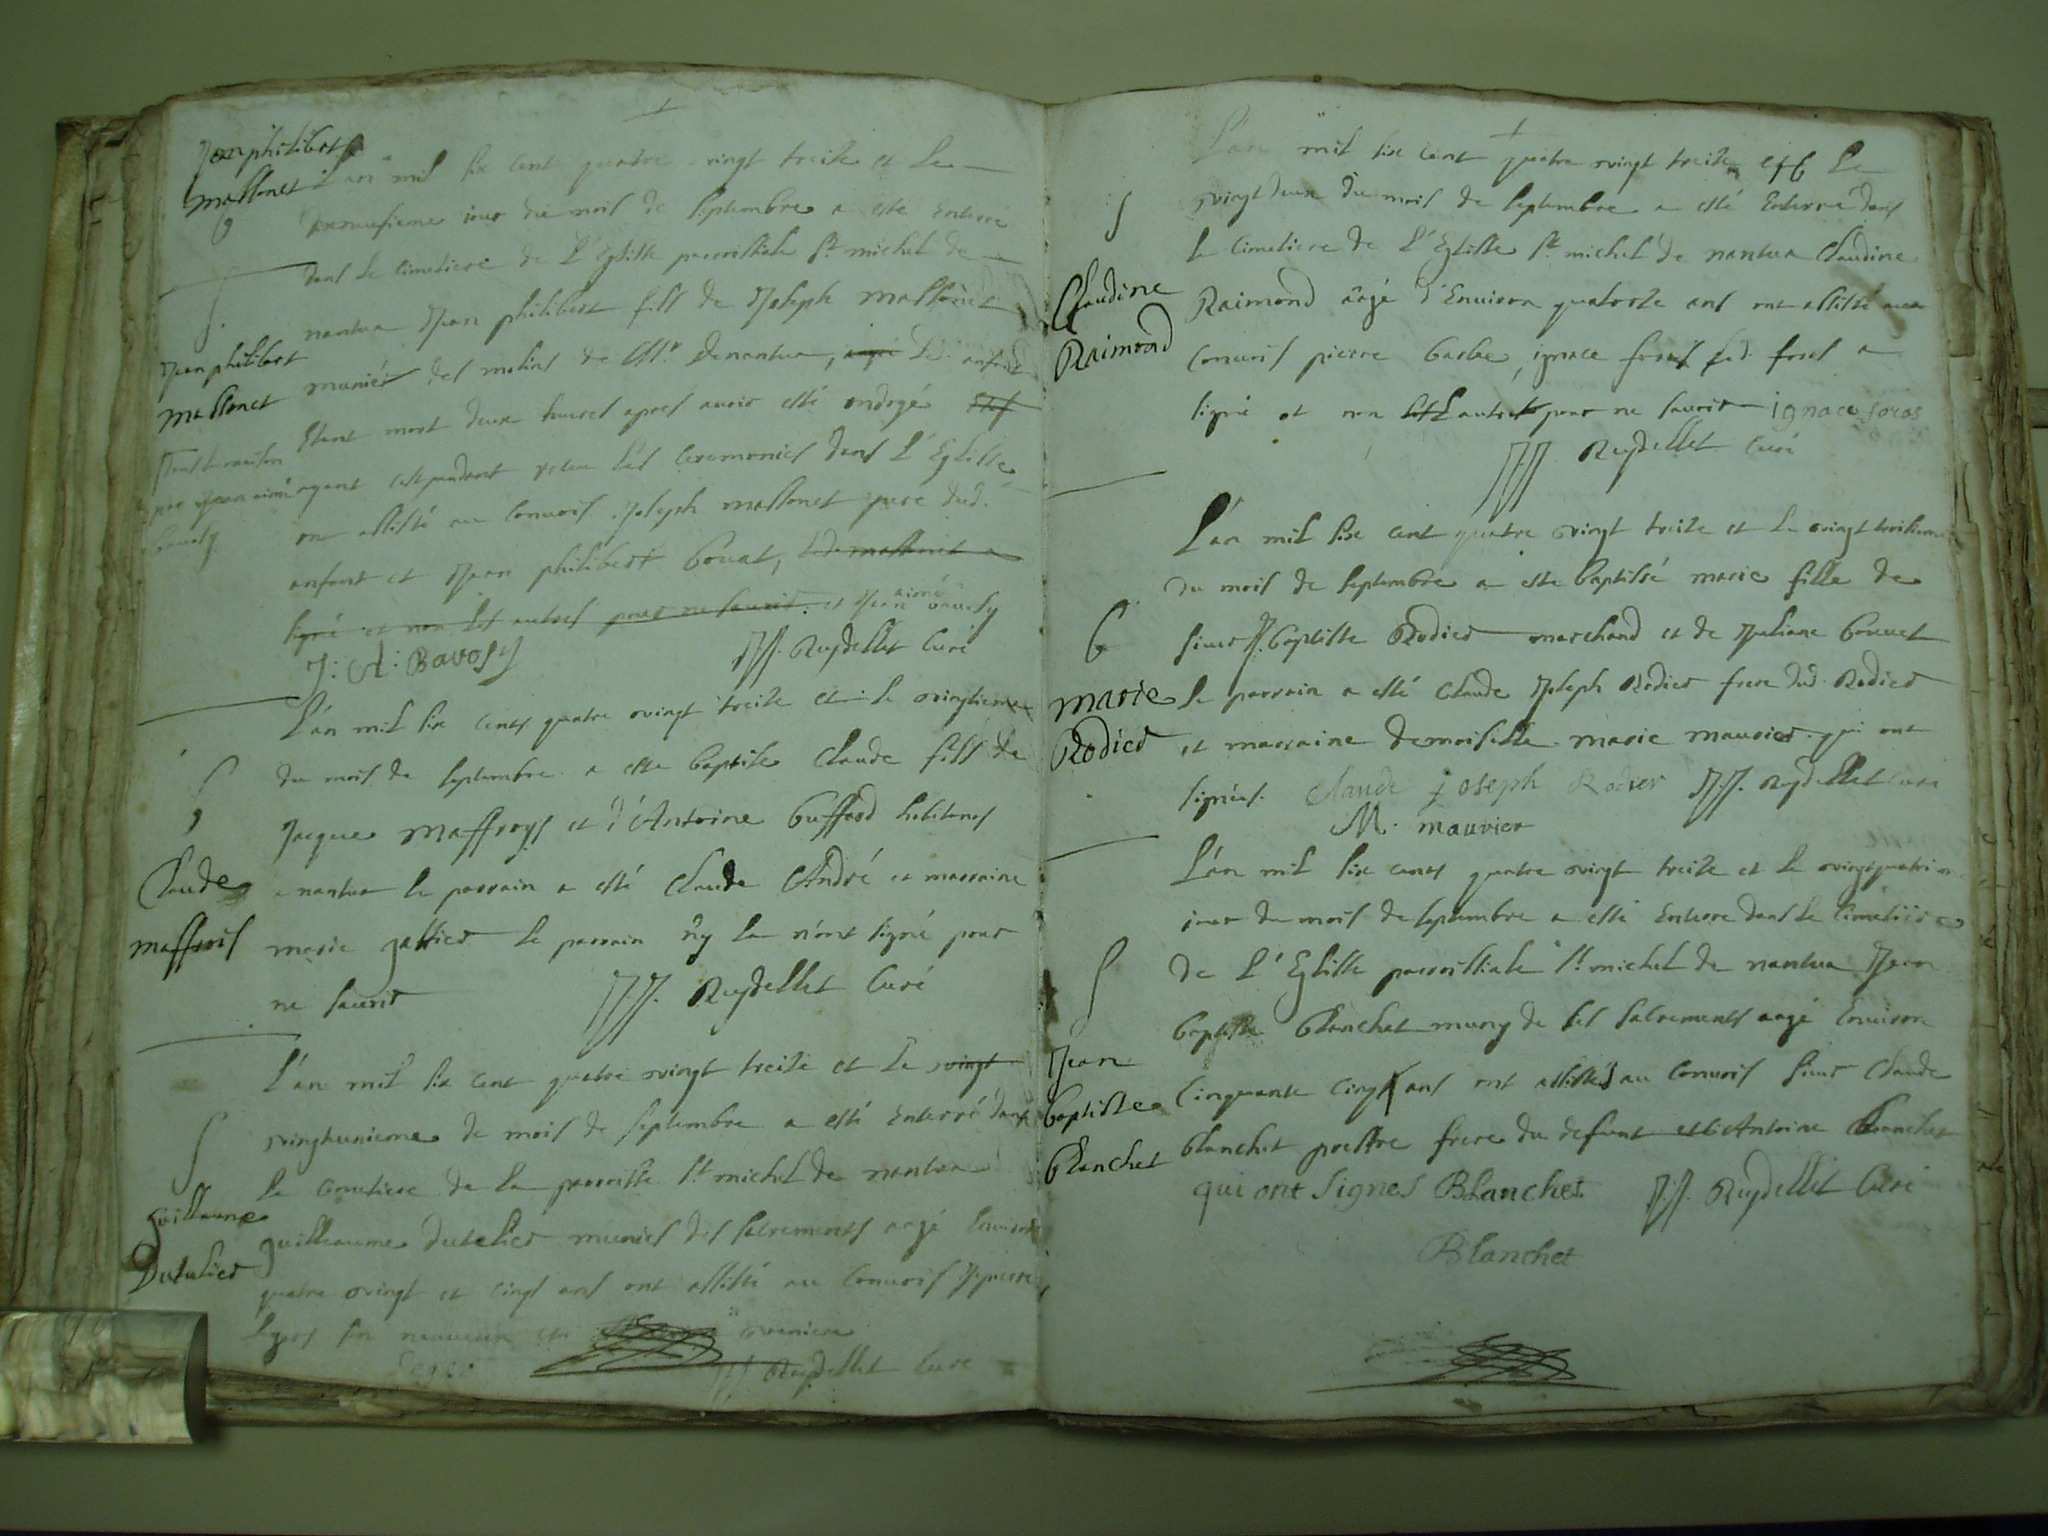 Jean philibert
Massonet
L'an mil six cent quatre vingt treize et le
jour du mois de septembre a esté enterré
dans le cimetiere de L'Eglisse parroissiale St michel de
nantua Jean philibert fils de Joseph Massonet
Jean philibert
Massonet
munier des molins de Mr de nantua, aagé Ld. enfant
Etant mort deux heures apres avoir esté ondoyé
ayant cependant receu les Ceremonies dans L'Eglisse
ont assisté au Convois Joseph Massonet pere dud.
enfant et Jean philibert bouat,
signé et non les autres pour ne savoir. et Jean aimé bavosy
J: A: Bavosy JJ. Reydellet Curé
L'an mil six cents quatre vingt treize et le vingtieme
du mois de septembre a esté baptisé Claude fils de
Jacque Maffroys et d'Antoine buffard habitans
Claude
maffrois
a nantua le parrain a esté Claude André et marraine
marie le parrain n'y la n'ont signé pour
ne savoir JJ. Reydellet Curé
L'an mil six cent quatre vingt treize et le vingt
vingtunieme de mois de septembre a esté Enterré dans
le cimetiere de la parroisse St michel de nantua
Guillaume
Dutelier
guilleaume dutelier munies des sacrements aagé Environ
quatre vingt et cinq ans ont assisté au Convois
JJ Reydellet Curé
L'an mil six cent quatre vingt treize et le
vingt deux du mois de septembre a esté Enterré dans
le Cimetiere de L'Eglisse St michel de nantua Claudine
Claudine
Raimond
Raimond aagé d'Environ quatorze ans ont assisté au
Convois pierre barbe, ignace foras lad. foras a
signé et non les autres pour ne savoir ignace foras
JJ. Reydellet Curé
L'an mil six cent quatre vingt treize et le vingt troisieme
du mois de septembre a este baptissé marie fille de
sieur J. baptiste Rodier marchand et de Juliane bouvet
marie
Rodier
le parrain a esté Claude Joseph Rodier frere dud. Rodier
et marraine demoiselle marie mauvier. qui ont
signés. Claude joseph Rodier JJ. Reydellet Curé
M. mauvier
L'an mil six cents quatre vingt treize et le vingtquatrieme
jour du mois de septembre a esté Enterré dans le Cimetiere
de L'Eglisse parroissiale St michel de nantua Jean
Jean
baptiste
blanchet
baptiste blanchet muny de ses sacrements aagé Environ
Cinquante cinq ans ont assistés au Convois sieur Claude
blanchet prestre frere du defunt et Antoine blanchet
qui ont signes Blanchet JJ. Reydellet Curé
Blanchet